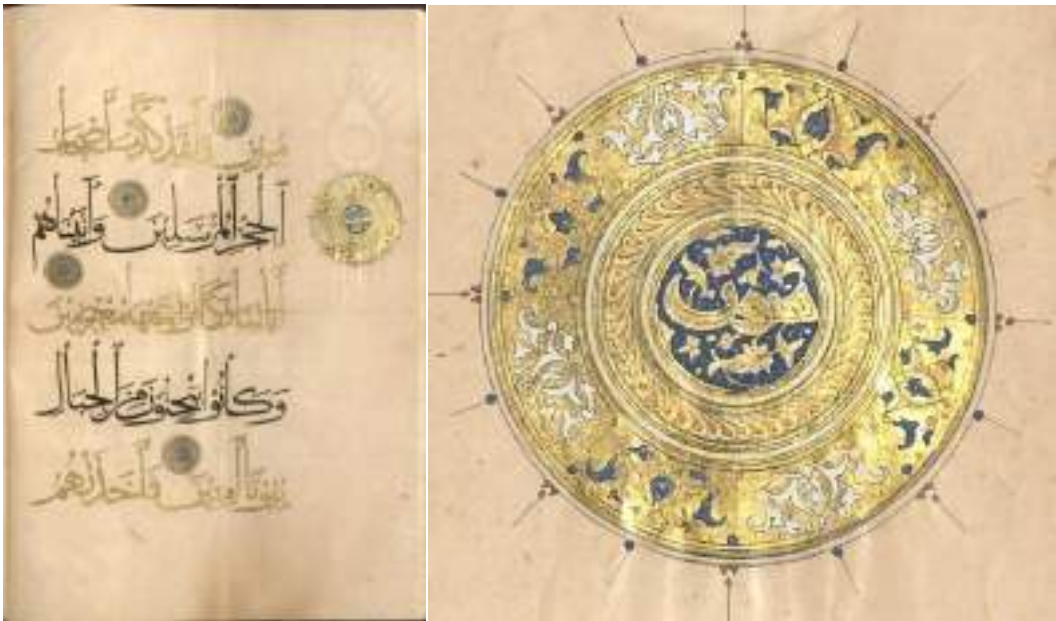 مبين ولقد كذب أصحاب
الحجر المرسلين وآتيناهم
آياتنا فكانوا عنها معرضين
وكانوا ينحتون من الجبال
بيوتا آمنين فأخذتهم